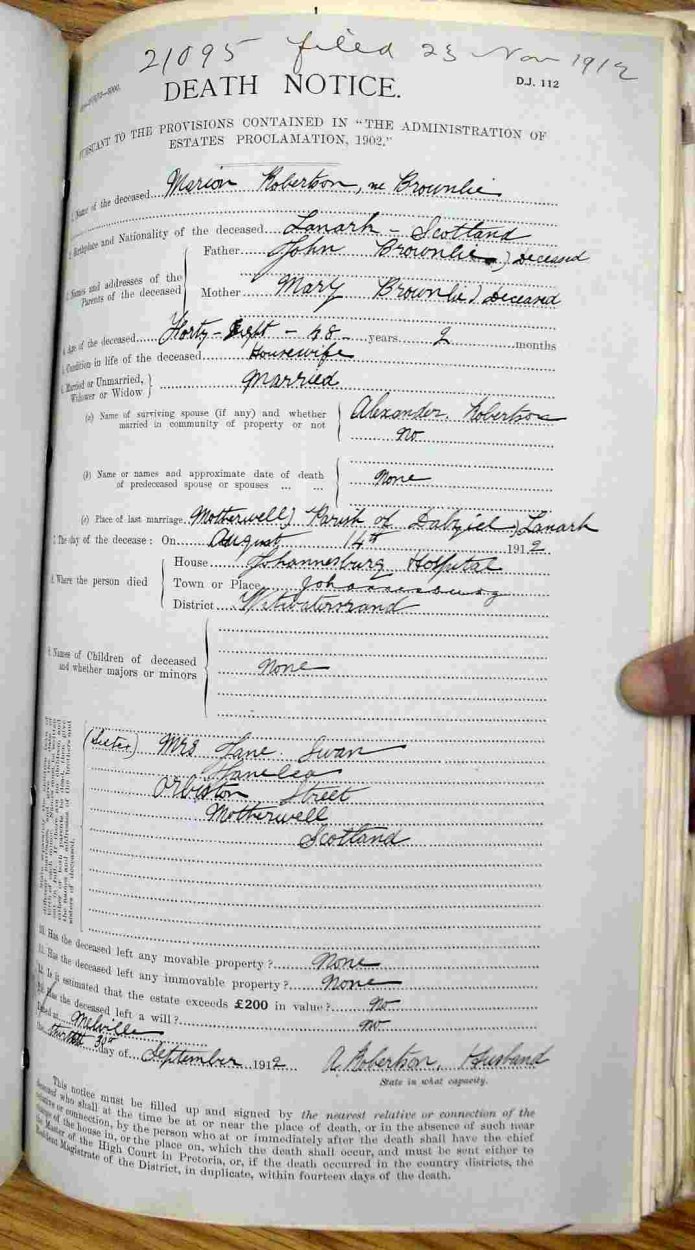 21095 filed 23 Nov 1912
DEATH NOTICE.
D.J. 112
PURSUANT TO THE PROVISIONS CONTAINED IN "THE ADMINISTRATION OF
ESTATES PROCLAMATION, 1902."
1. Name of the deceased Marion Robertson, ne Brownlie
2. Birthplace and Nationality of the deceased Lanark - Scotland
3. Names and addresses of the Parents of the deceased
Father John Brownlie) deceased
Mother Mary Brownlie) deceased
4. Age of the deceased Forty-Eight - 48 years 2 months
5. Condition in life of the deceased Housewife
6. Married or Unmarried,
Widower or Widow } Married
(a) Name of surviving spouse (if any) and whether Alexander Robertson
married in community of property or not No
(b) Name or names and approximate date of death
of predeceased spouse or spouses ... ... None
(c) Place of last marriage Motherwell) Parish of Dalziel) Lanark
7. The day of the decease: On August 14th 1912
8. Where the person died
House Johannesburg Hospital
Town or Place Johannesburg
District Witwatersrand
9. Names of Children of deceased
and whether majors or minors None
(Sister) Mrs Jane Swan
Orbiston Street
Motherwell
Scotland
10. Has the deceased left any movable property? None
11. Has the deceased left any immovable property? None
12. Is it estimated that the estate exceeds £200 in value? No
13. Has the deceased left a will? No
Dated at Melville
the 30th day of September 1912 A. Robertson, Husband
State in what capacity.
This notice must be filled up and signed by the nearest relative or connection of the
deceased who shall at the time be at or near the place of death, or in the absence of such near
relative or connection, by the person who at or immediately after the death shall have the chief
charge of the house in, or the place on, which the death shall occur, and must be sent either to
the Master of the High Court in Pretoria, or, if the death occurred in the country districts, the
Resident Magistrate of the District, in duplicate, within fourteen days of the death.